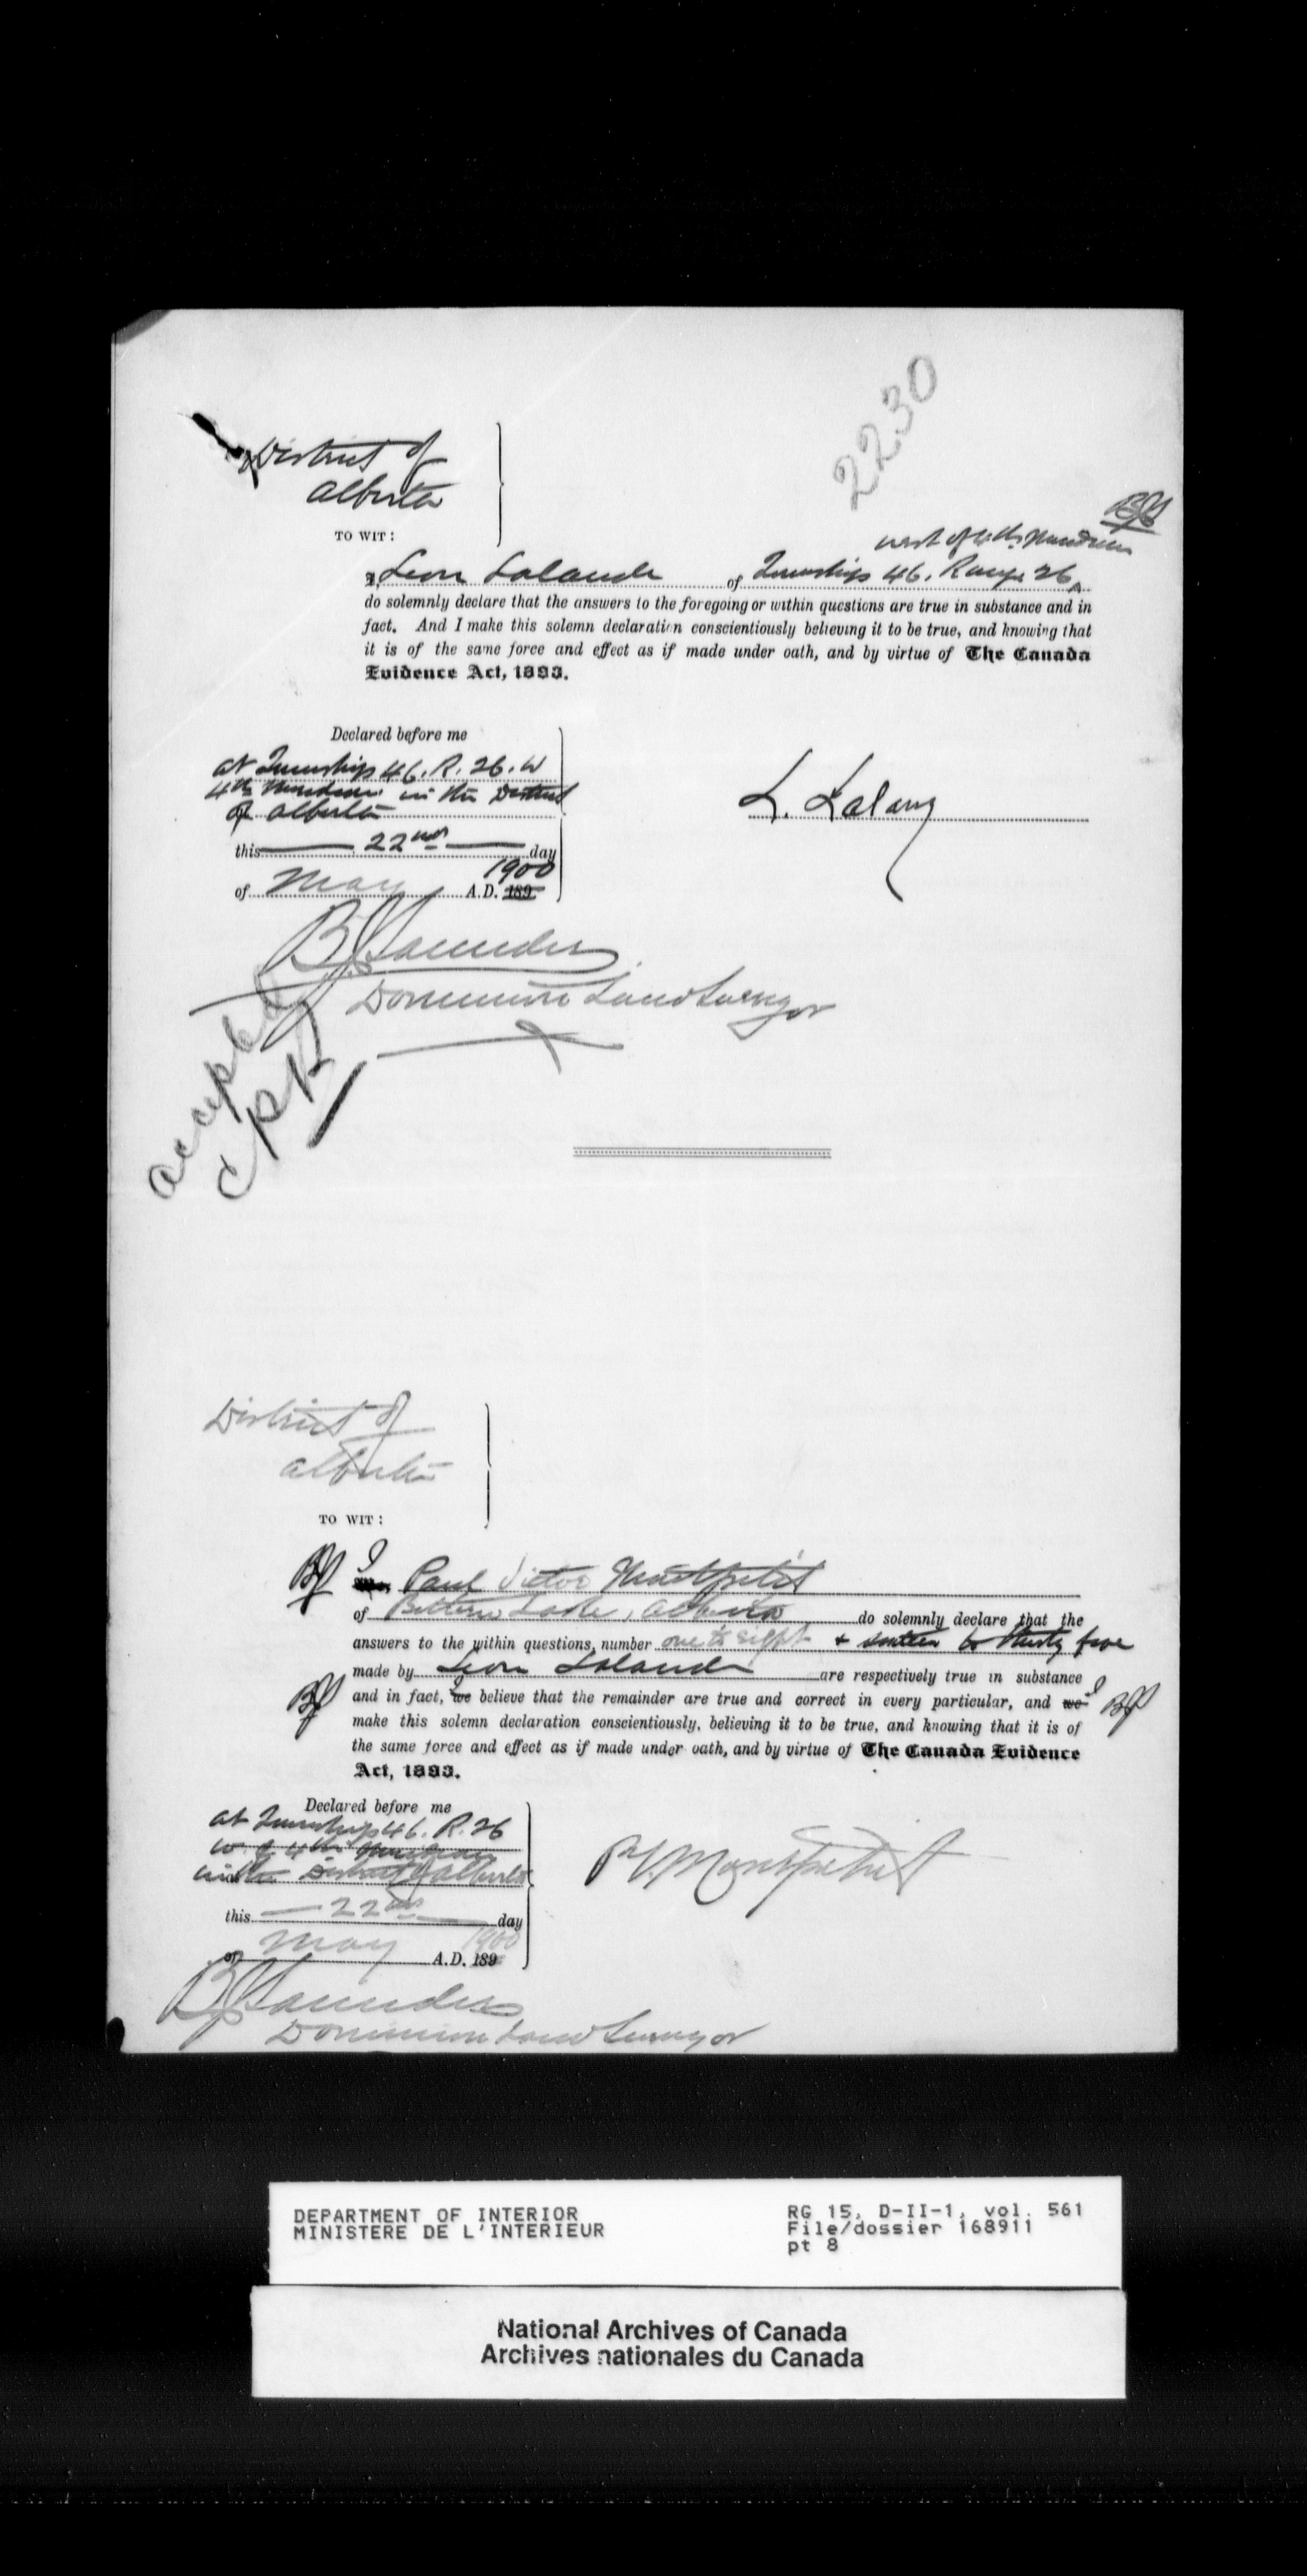 2230
District of
Alberta
TO WIT:
BJS
west of 4th Meridian
I, Leon Lalande of Township 46. Range 26
do solemnly declare that the answers to the foregoing or within questions are true in substance and in
fact. And I make this solemn declaration conscientiously believing it to be true, and knowing that
it is of the same force and effect as if made under oath, and by virtue of The Canada
Evidence Act, 1893.
Declared before me
at Township 46. R. 26. W
4th Meridian in the District
of Alberta
this 22nd day
1900
of May A.D. 189
L. Lalany
BJ Saunders
Dominion Land Surveyor
accepted
CPR
District of
Alberta
TO WIT:
BJS I
Paul Victor Montpetit
of Bittern Lake, Alberta do solemnly declare that the
answers to the within questions, number one to eight + sixteen to thirty five
made by Leon Lalande are respectively true in substance
BJS and in fact, we I believe that the remainder are true and correct in every particular, and we I BJS
make this solemn declaration conscientiously, believing it to be true, and knowing that it is of
the same force and effect as if made under oath, and by virtue of The Canada Evidence
Act, 1893.
Declared before me
at Township 46. R. 26
W of 4th Meridian
in the District of Alberta
this 22nd day
1900
of May A.D. 189
P.V. Montpetit
BJ Saunders
Dominion Land Surveyor
DEPARTMENT OF INTERIOR
MINISTERE DE L'INTERIEUR
RG 15, D-II-1, vol. 561
File/dossier 168911
pt 8
National Archives of Canada
Archives nationales du Canada